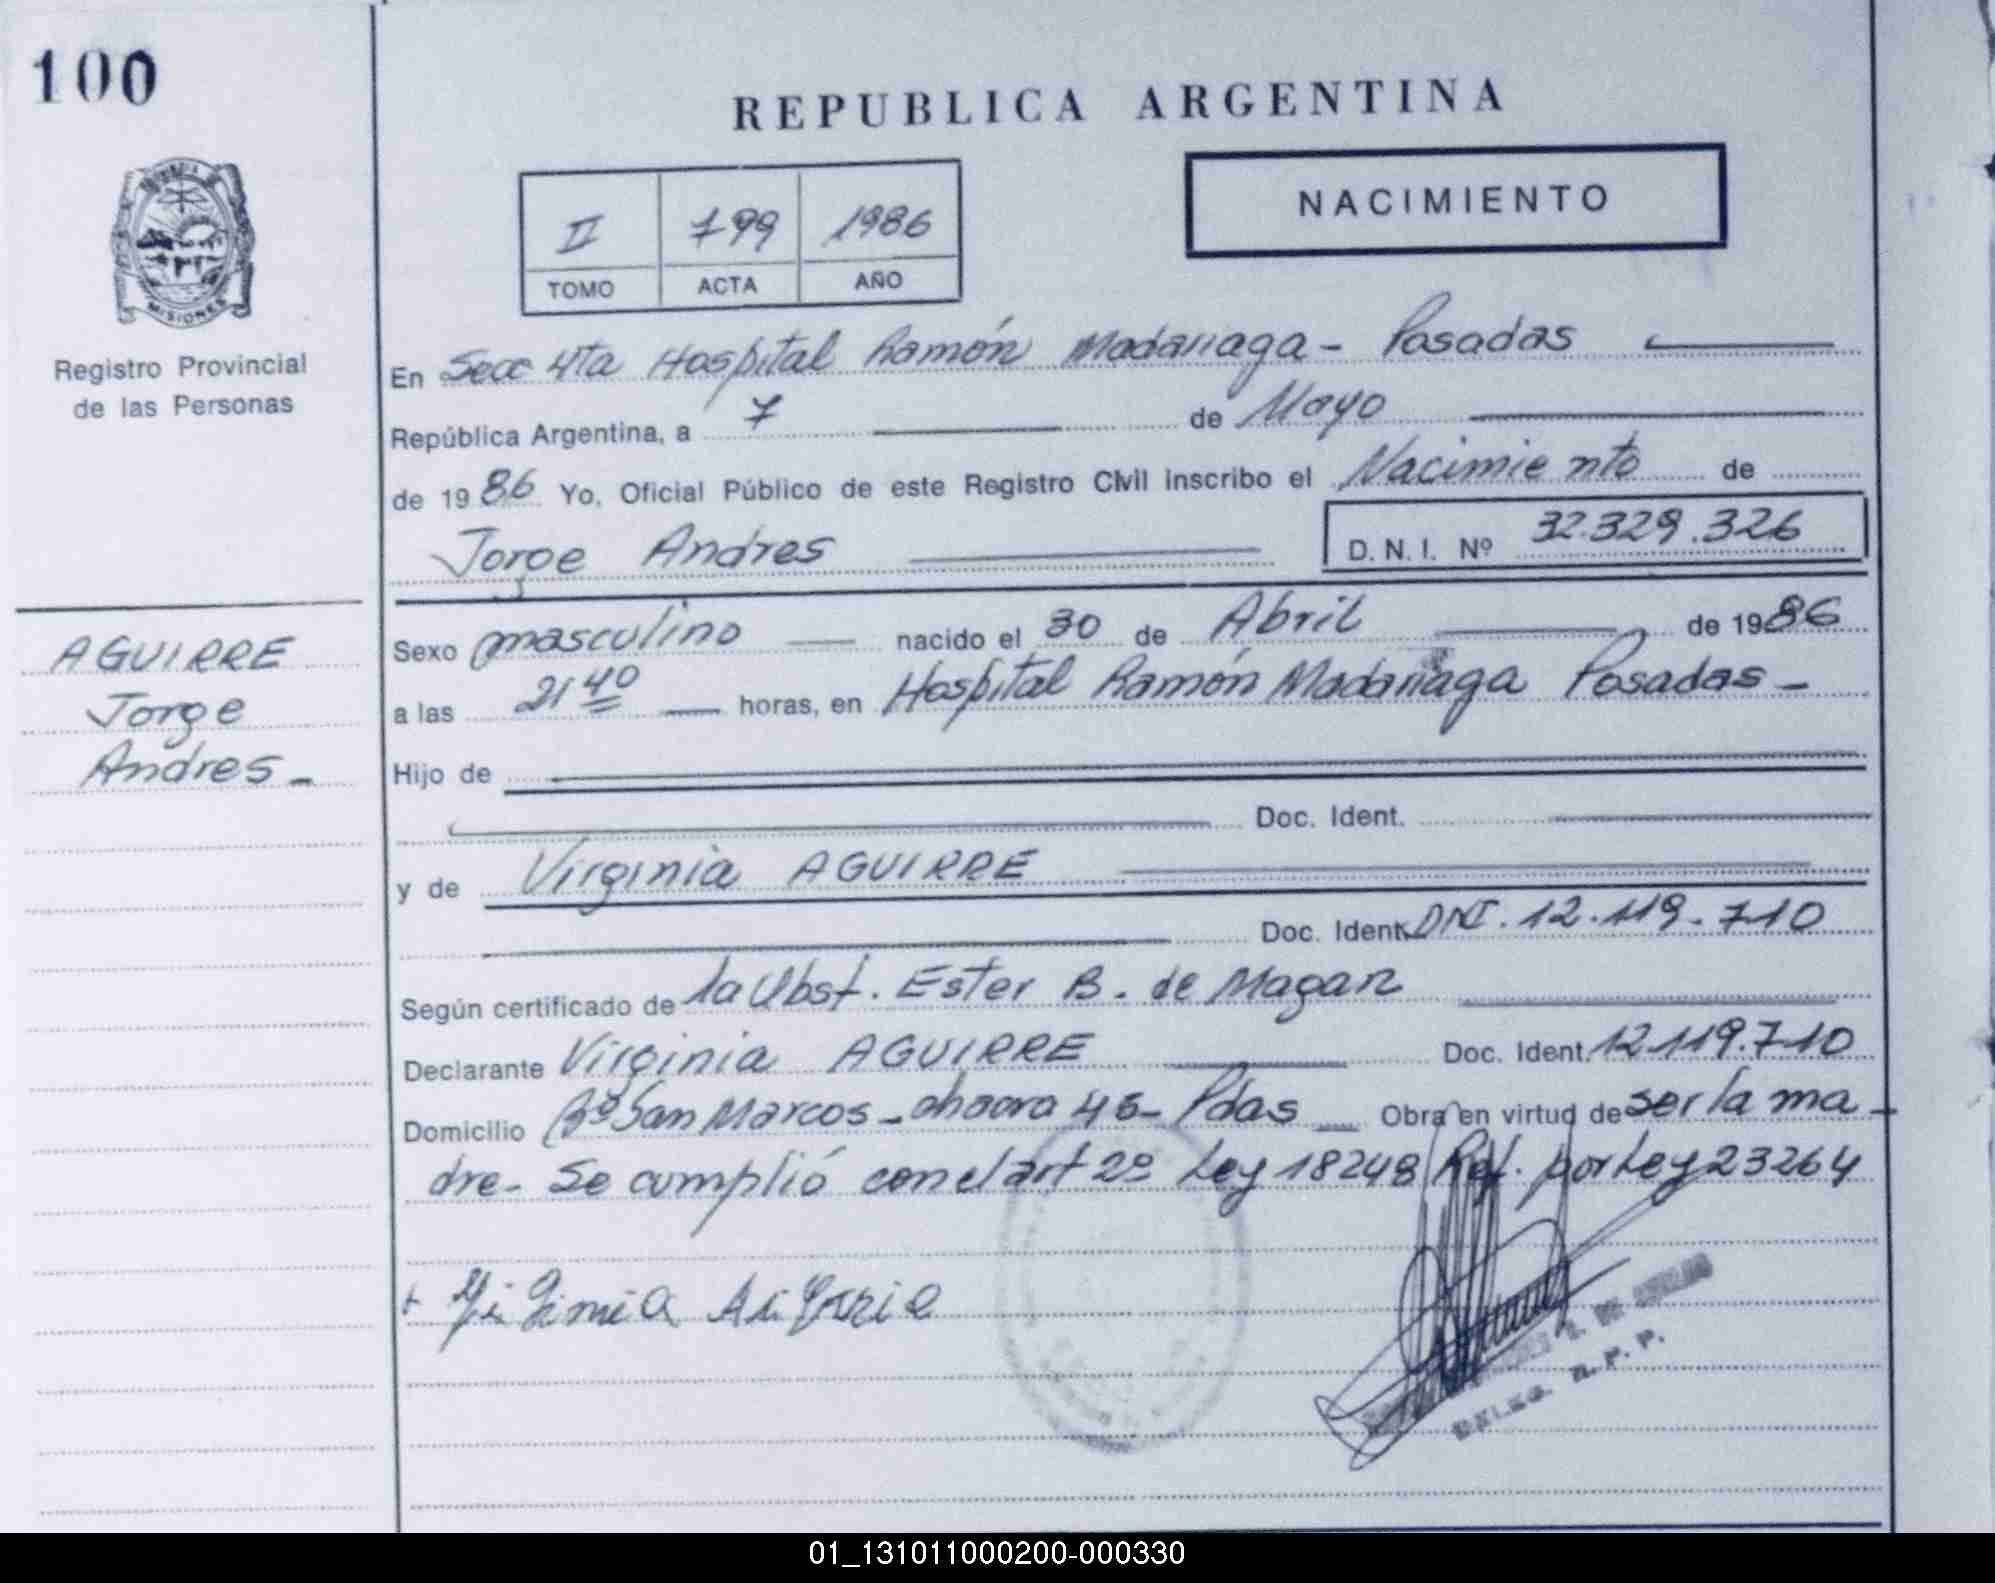 100
REPUBLICA ARGENTINA
NACIMIENTO
II 799 1986
TOMO ACTA AÑO
MISIONES
Registro Provincial
de las Personas
En Secc 4ta Hospital Ramón Madariaga - Posadas
República Argentina, a 7 de Mayo
de 1986 Yo, Oficial Público de este Registro Civil inscribo el Nacimiento de
Jorge Andres D. N. I. Nº 32.329.326
AGUIRRE
Jorge
Andres -
Sexo masculino nacido el 30 de Abril de 1986
a las 21 40 horas, en Hospital Ramón Madariaga Posadas -
Hijo de
Doc. Ident.
y de Virginia AGUIRRE
Doc. Ident. DNI. 12.119.710
Según certificado de la Obst. Ester B. de Magan
Declarante Virginia AGUIRRE Doc. Ident. 12.119.710
Domicilio Bº San Marcos - chacra 46 - Pdas Obra en virtud de ser la ma -
dre - Se cumplió con el art 2º Ley 18248 Ref. por Ley 23264
DELEG. R. P. P.
01_131011000200-000330